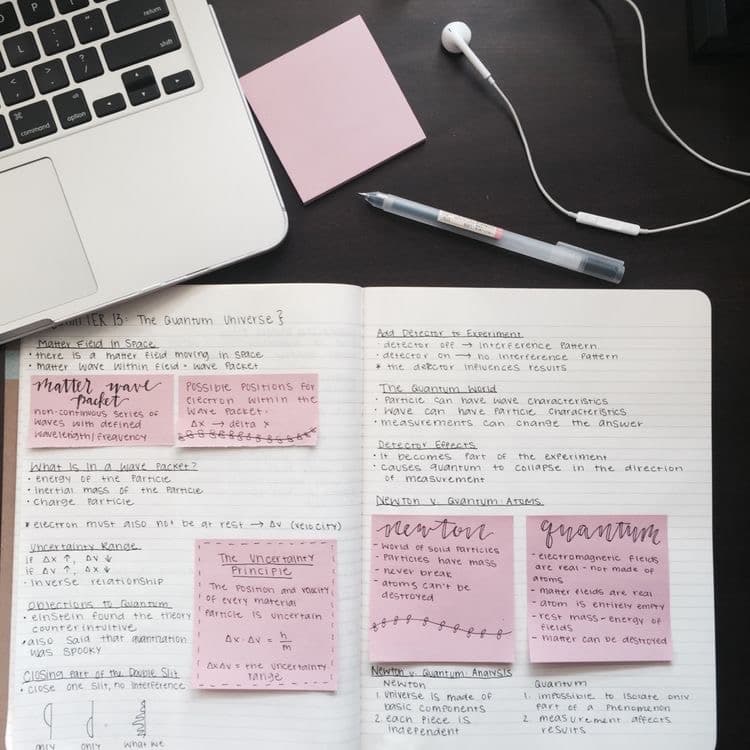 return
shift
command
option
alt
13: The Quantum Universe }
Matter Field in Space
• there is a matter field moving in space
• matter wave within field = wave packet
matter wave
packet
non-continuous series of
waves with defined
wavelength/frequency
Possible positions for
electron within the
wave packet.
Δx → delta x
What is in a wave packet?
• energy of the particle
• inertial mass of the particle
• charge particle
* electron must also not be at rest → Δv (velocity)
Uncertainty Range
if Δx ↑, Δv ↓
if Δv ↑, Δx ↓
• inverse relationship
Objections to Quantum
• einstein found the theory
counterintuitive
• also said that quantization
was spooky
Closing part of the Double Slit
• close one slit, no interference
only only what we
The Uncertainty
Principle
The position and velocity
of every material
particle is uncertain
Δx · Δv = h/m
ΔxΔv = the uncertainty
range
Add Detector to Experiment
• detector off → interference pattern
• detector on → no interference pattern
* the detector influences results
The Quantum World
• particle can have wave characteristics
• wave can have particle characteristics
• measurements can change the answer
Detector Effects
• it becomes part of the experiment
• causes quantum to collapse in the direction
of measurement
Newton v. Quantum: Atoms
newton
- world of solid particles
- particles have mass
- never break
- atoms can't be
destroyed
quantum
- electromagnetic fields
are real - not made of
atoms
- matter fields are real
- atom is entirely empty
- rest mass - energy of
fields
- matter can be destroyed
Newton v. Quantum: Analysis
Newton
1. universe is made of
basic components
2. each piece is
independent
Quantum
1. impossible to isolate only
part of a phenomenon
2. measurement affects
results